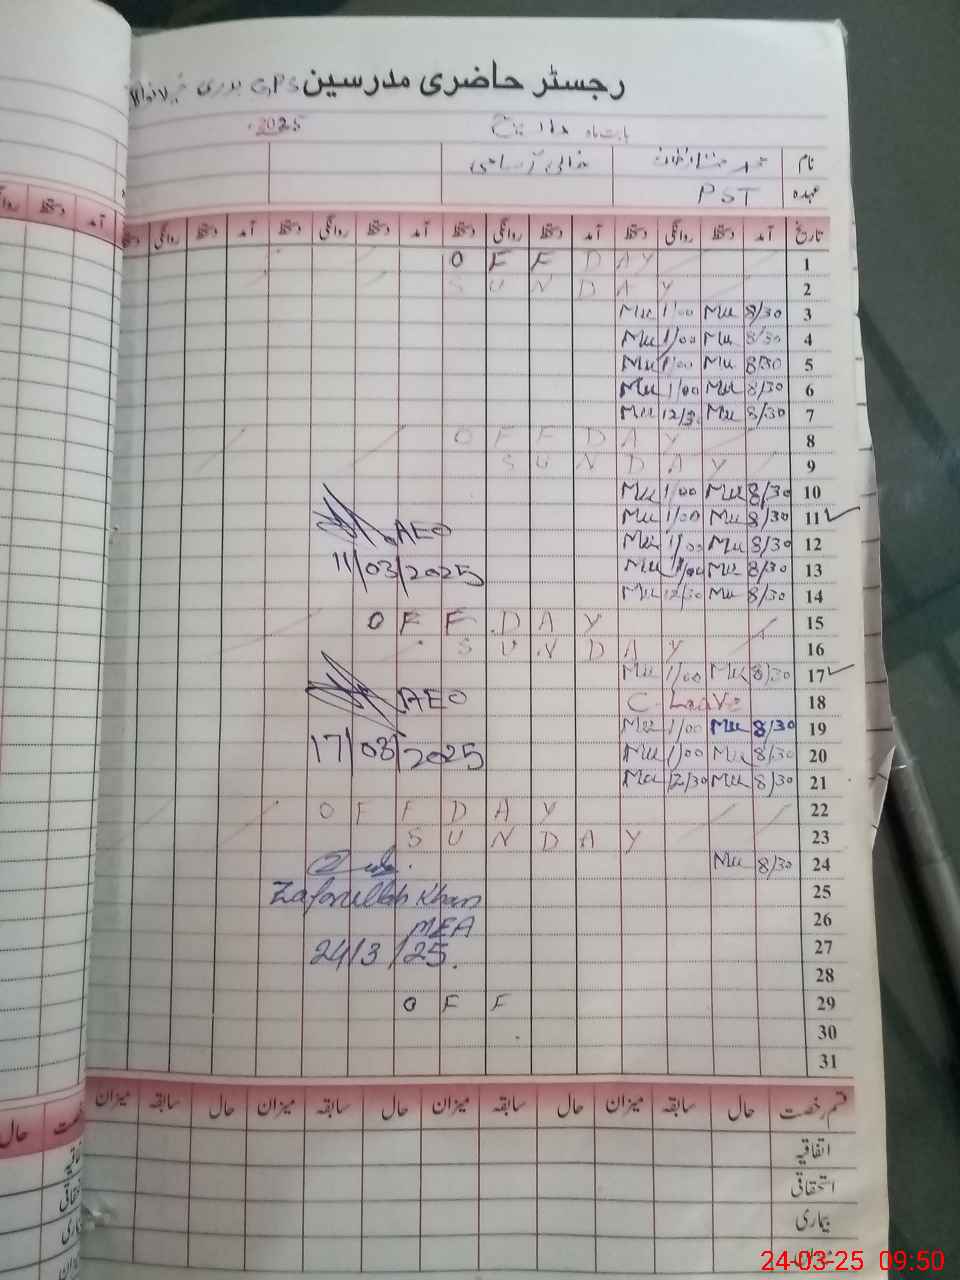 رجسٹر حاضری مدرسین GPS
بابت ماہ مارچ 2025
نام محمد
خالی آسامی
عہدہ PST
تاریخ آمد دستخط روانگی دستخط آمد دستخط روانگی دستخط آمد دستخط روانگی دستخط آمد دستخط روانگی
1 OFF DAY
2 SUNDAY
3 8/30 Mu 1/00 Mu
4 8/30 Mu 1/00 Mu
5 8/30 Mu 1/00 Mu
6 8/30 Mu 1/00 Mu
7 8/30 Mu 12/30 Mu
8 OFF DAY
9 SUNDAY
10 8/30 Mu 1/00 Mu
11 8/30 Mu 1/00 Mu
AEO
12 8/30 Mu 1/00 Mu
11/03/2025
13 8/30 Mu 1/00 Mu
14 8/30 Mu 12/30 Mu
15 OFF DAY
16 SUNDAY
17 8/30 Mu 1/00 Mu
18 C-Leave
AEO
19 8/30 Mu 1/00 Mu
17/03/2025
20 8/30 Mu 1/00 Mu
21 8/30 Mu 12/30 Mu
22 OFF DAY
23 SUNDAY
24 8/30 Mu
25
Zafarullah Khan
26
MEA
27
24/3/25
28
29 OFF
30
31
قسم رخصت حال سابقہ میزان حال سابقہ میزان حال سابقہ میزان حال سابقہ میزان
اتفاقیہ
استحقاقی
بیماری
میزان
24-03-25 09:50